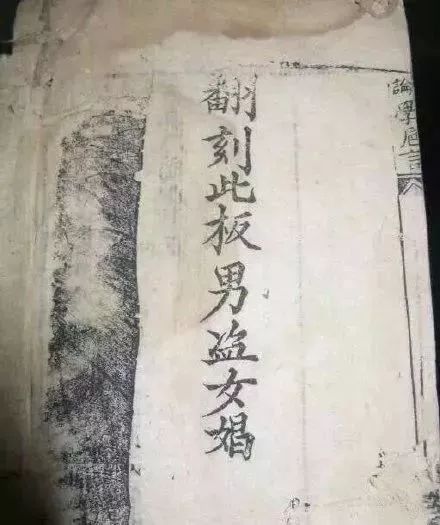 論學巵言
翻刻此板男盗女娼